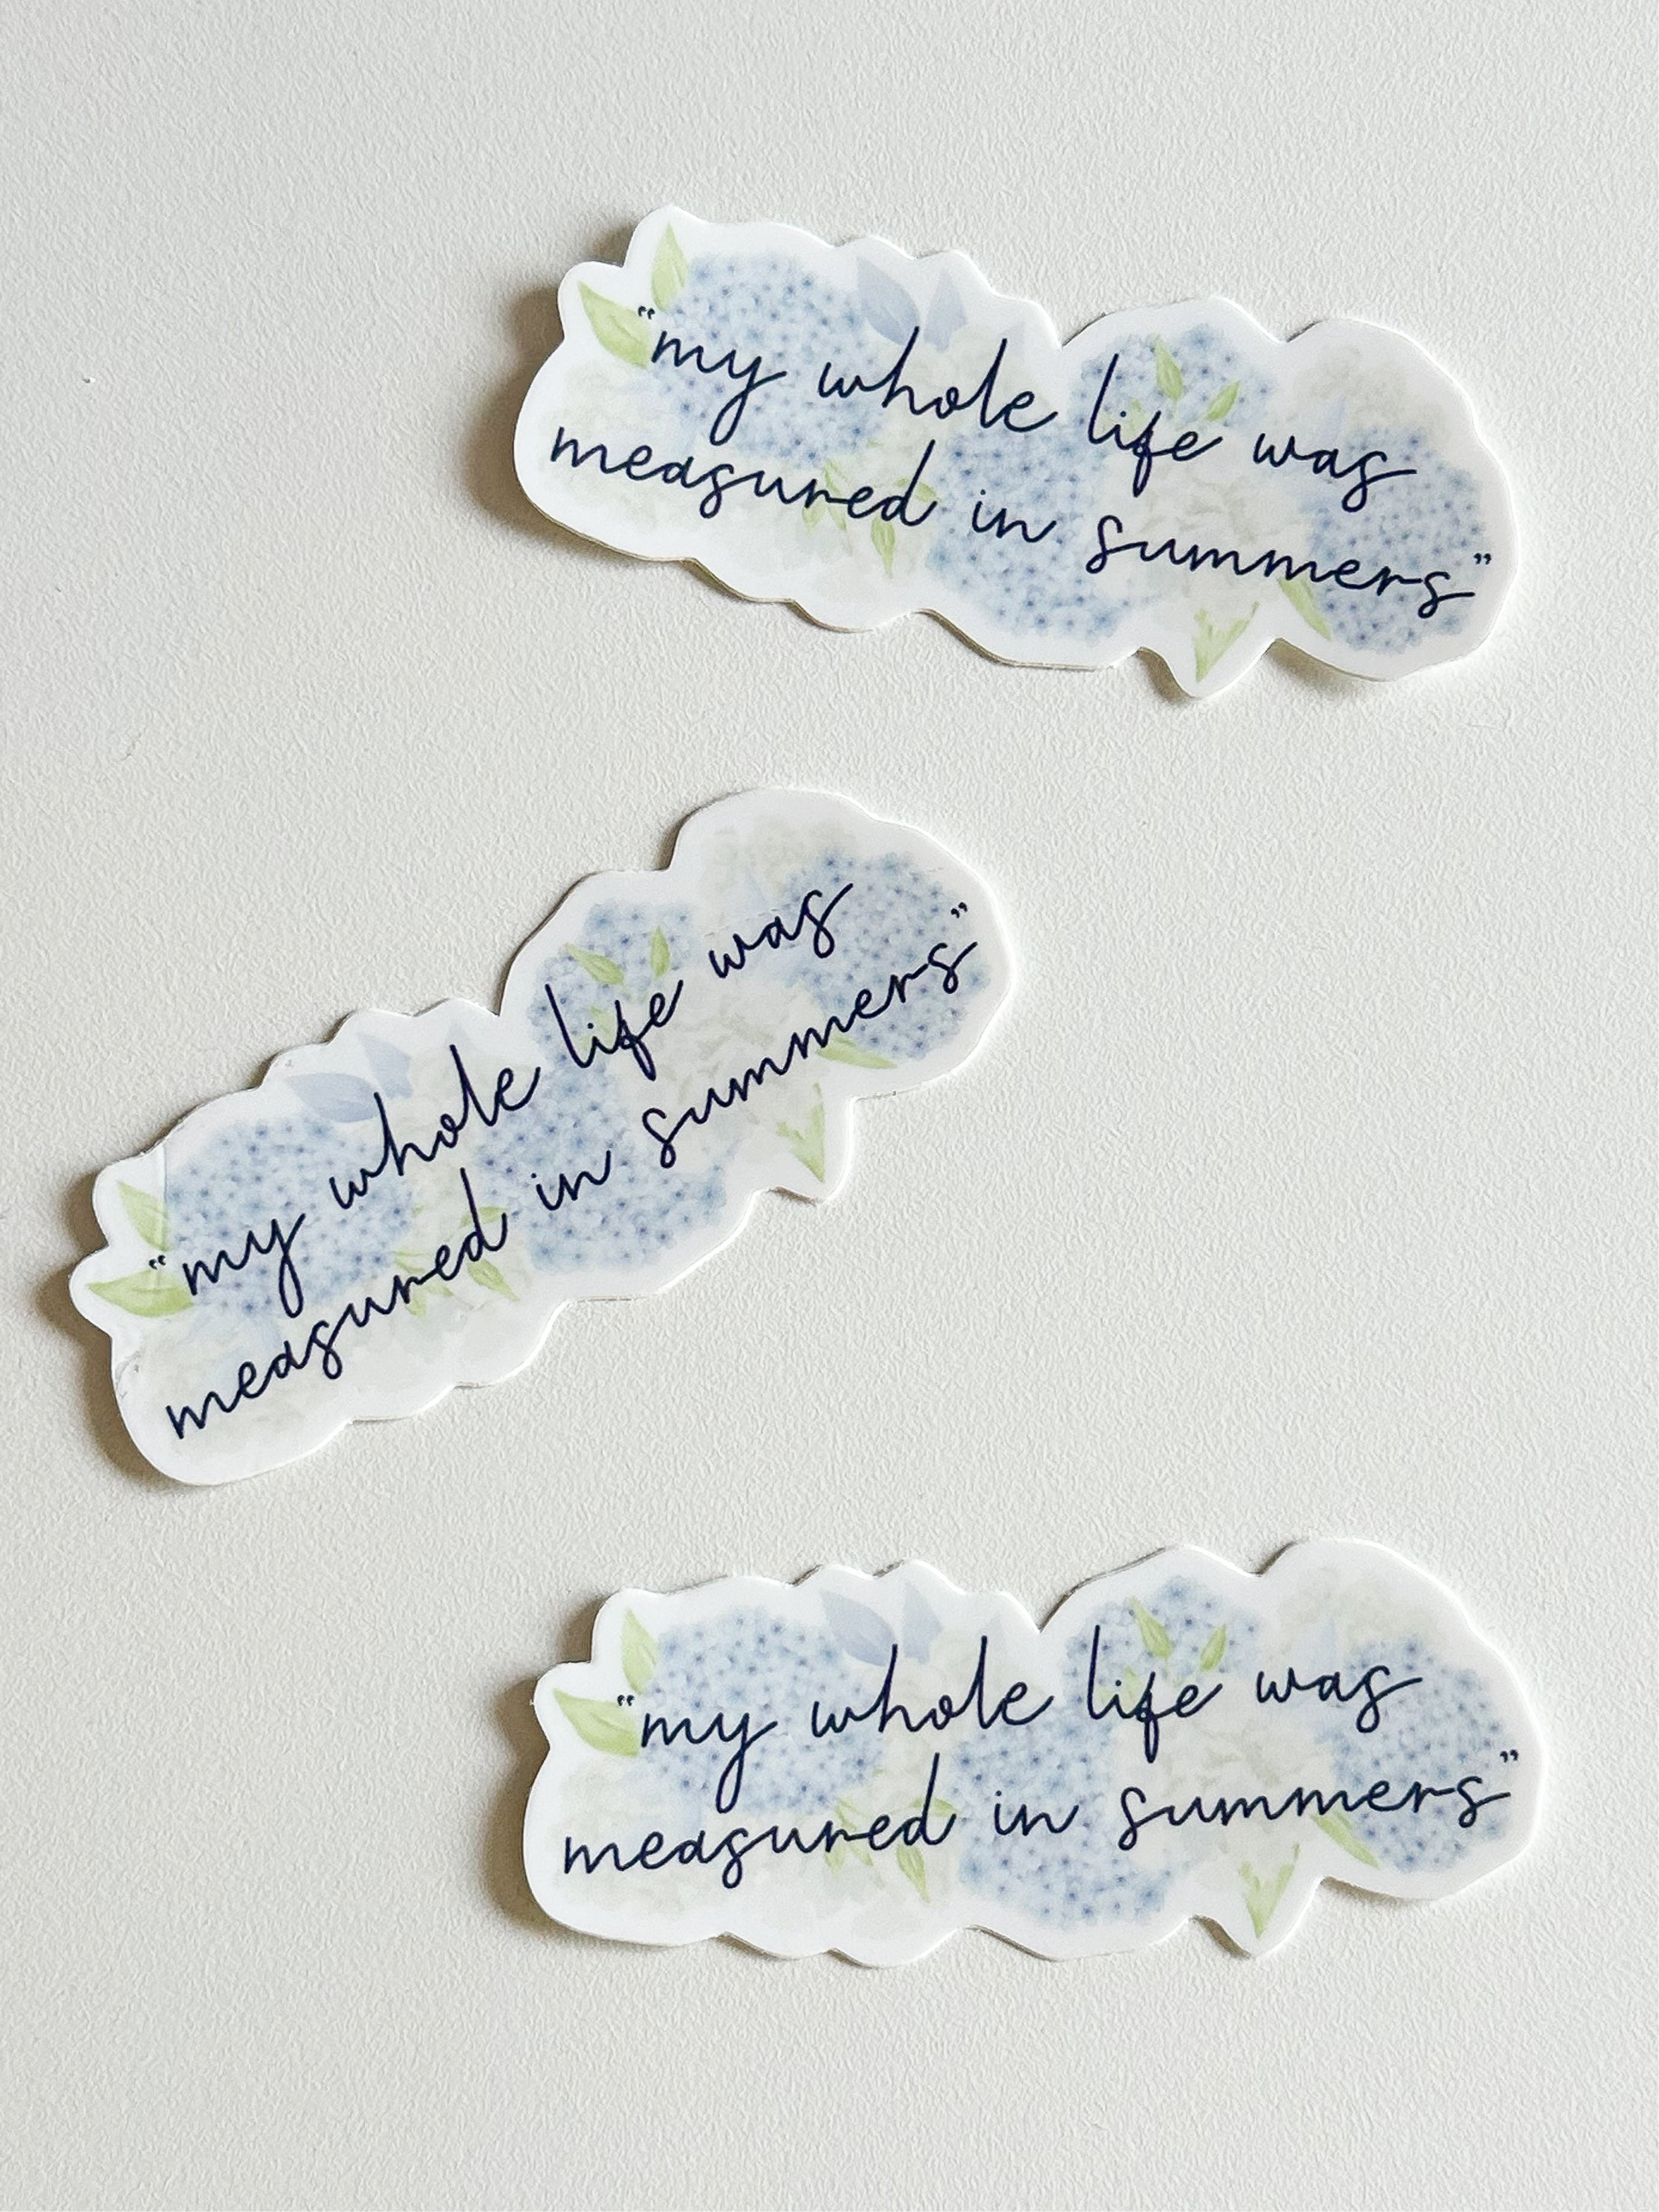 “my whole life was
measured in summers”
“my whole life was
measured in summers”
“my whole life was
measured in summers”